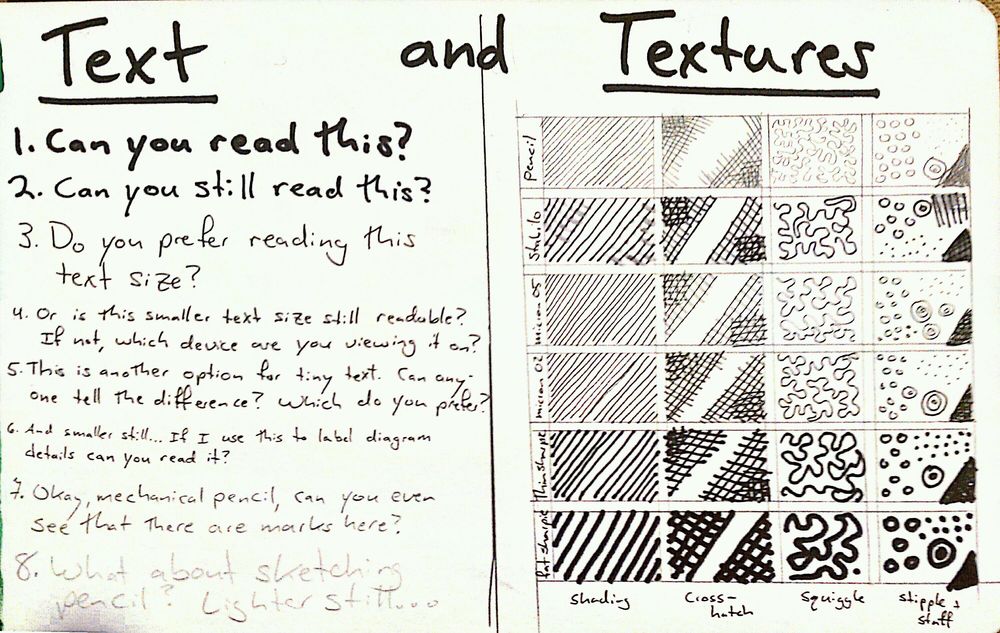 Text and Textures
1. Can you read this?
2. Can you still read this?
3. Do you prefer reading this
text size?
4. Or is this smaller text size still readable?
If not, which device are you viewing it on?
5. This is another option for tiny text. Can any-
one tell the difference? Which do you prefer?
6. And smaller still... If I use this to label diagram
details can you read it?
7. Okay, mechanical pencil, can you even
see that there are marks here?
8. What about sketching
pencil? Lighter still...
pencil
micron 05
micron 02
thin sharpie
fat sharpie
shading
Cross-
hatch
Squiggle
stipple &
stuff